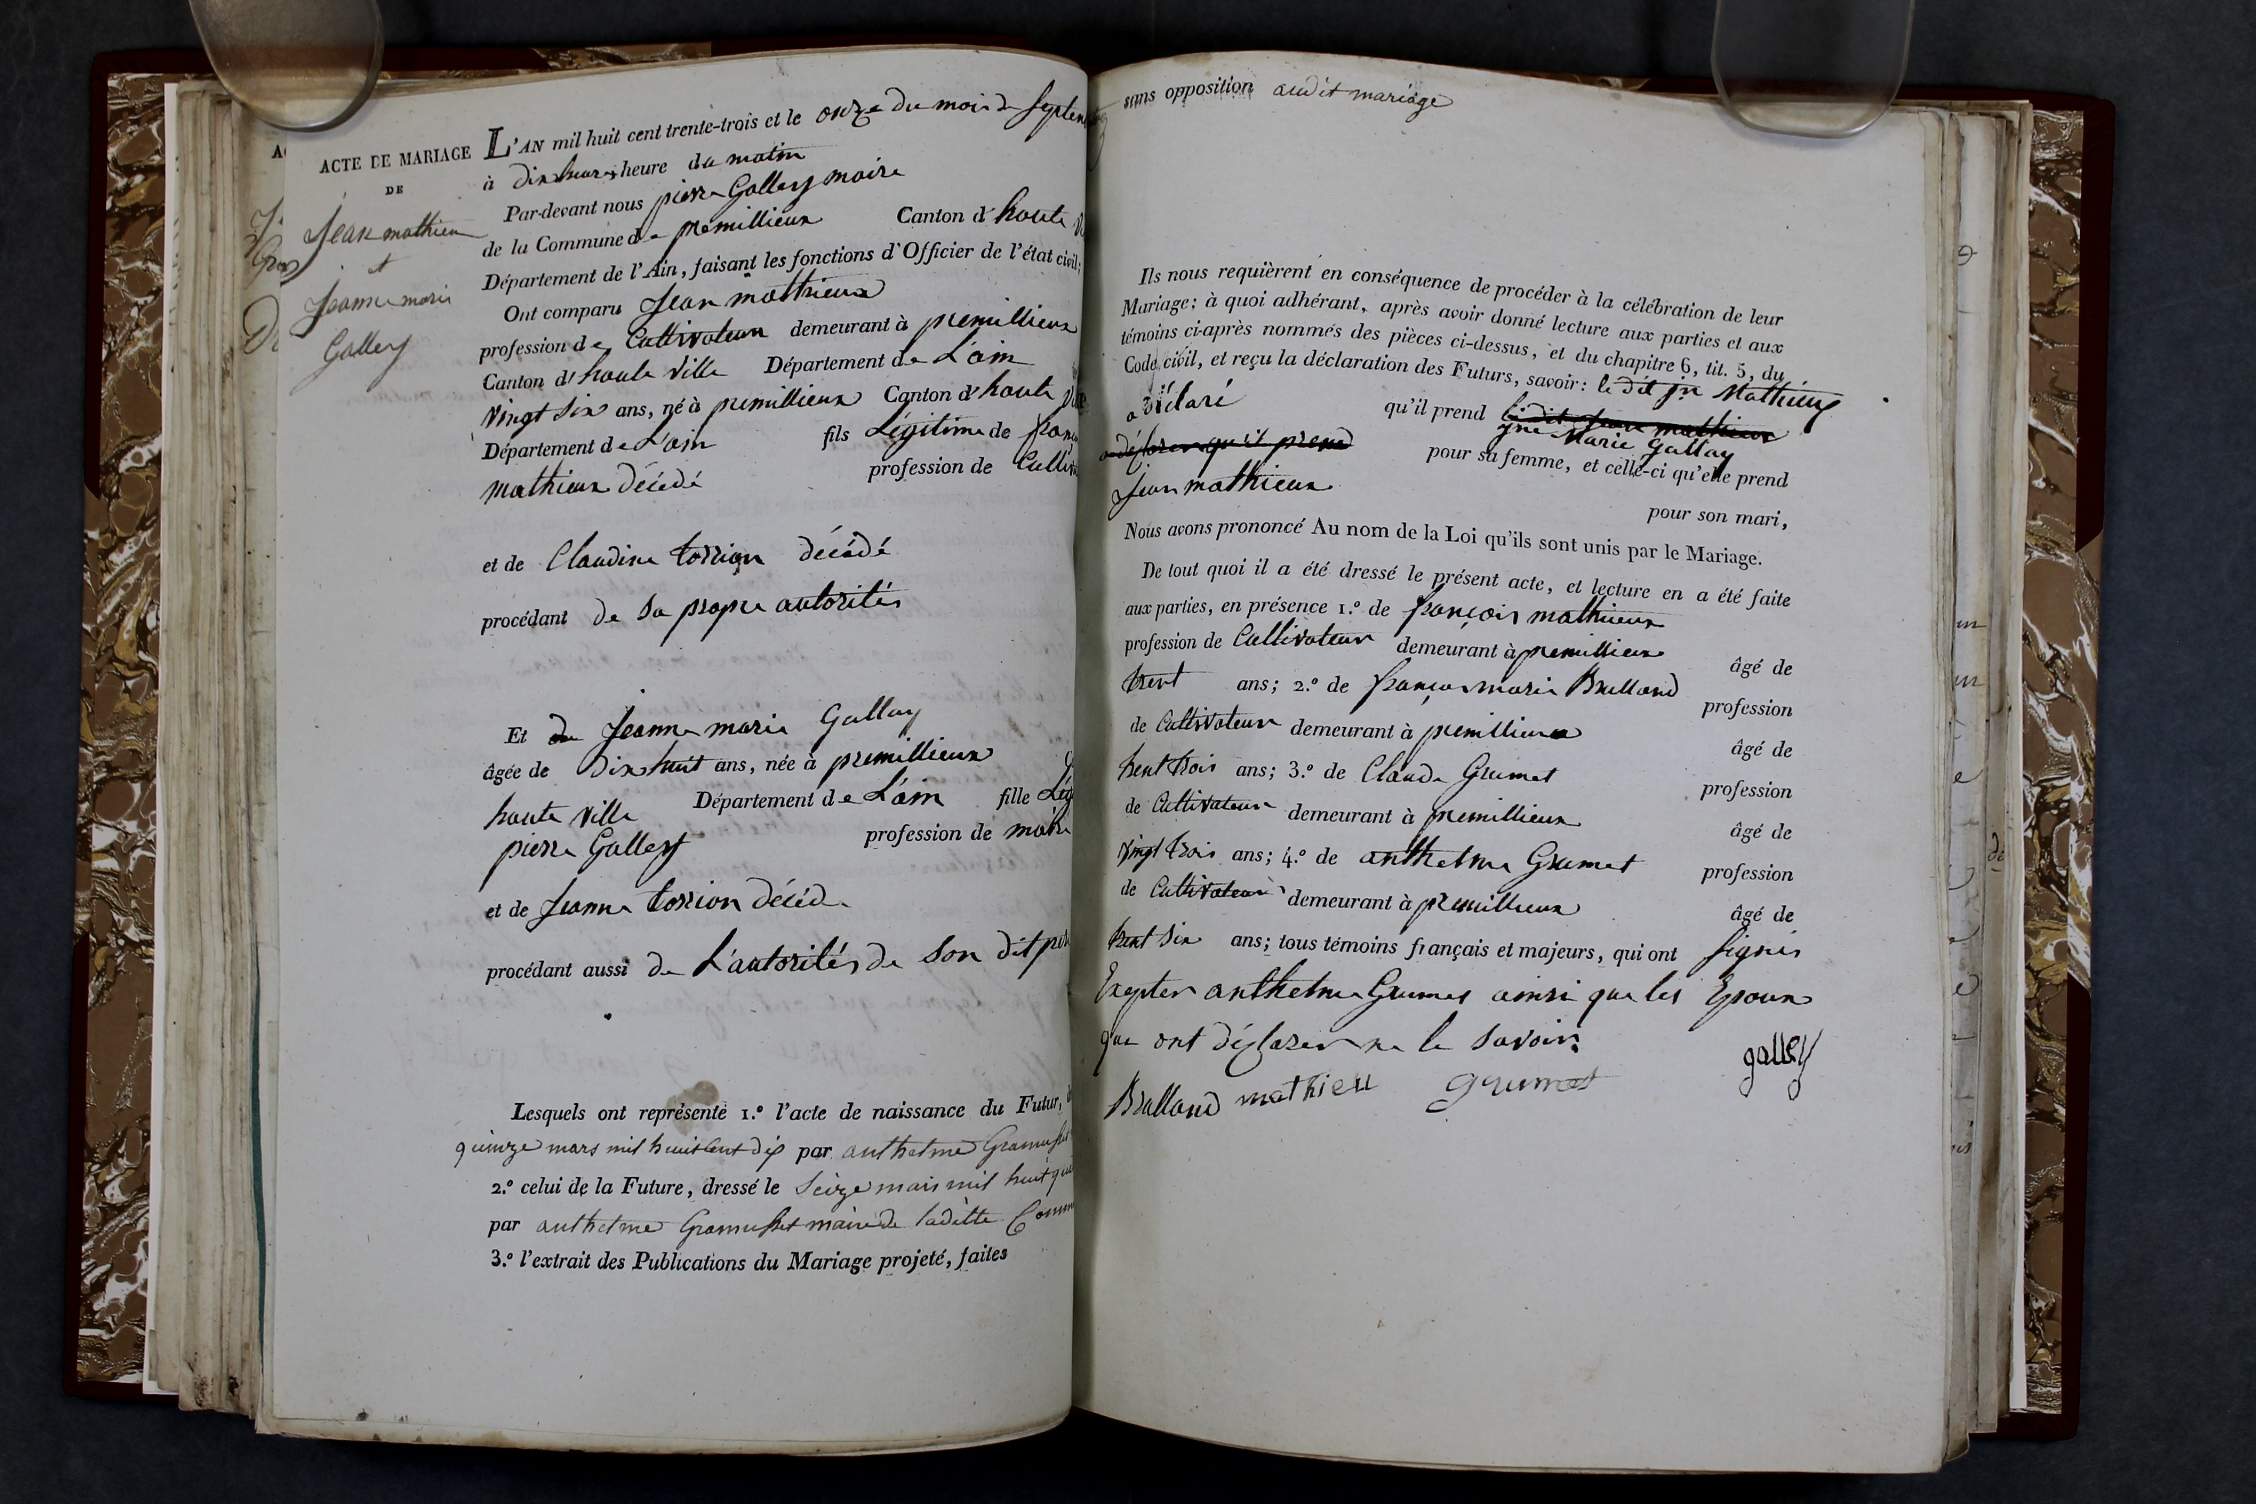 ACTE DE MARIAGE
DE
Jean mathieu
et
Jeanne marie
Gallay
L'AN mil huit cent trente-trois et le onze du mois de Septem
à dix heures heure du matin
Par-devant nous pierre Gallay maire
de la Commune de premillieux Canton d' haute
Département de l'Ain, faisant les fonctions d'Officier de l'état civil;
Ont comparu Jean mathieux
profession de Cultivateur demeurant à premillieux
Canton d' haute ville Département de L'ain
vingt six ans, né à premillieux Canton d' haute
Département de L'ain fils Légitime de
mathieux décédé profession de
et de Claudine torrion décédé
procédant de sa propre autorités
Et de Jeanne marie Gallay
âgée de Dix huit ans, née à premillieux
haute ville Département de L'ain fille
pierre Gallay profession de
et de Jeanne torrion décédé
procédant aussi de L'autorités de son dit
Lesquels ont représenté 1.º l'acte de naissance du Futur,
quinze mars mil huit cent dix par anthelme Gramusset
2.º celui de la Future, dressé le Seize mars mil huit
par anthelme Gramusset maire de ladite Comm
3.º l'extrait des Publications du Mariage projeté, faites
sans opposition audit mariage
Ils nous requièrent en conséquence de procéder à la célébration de leur
Mariage; à quoi adhérant, après avoir donné lecture aux parties et aux
témoins ci-après nommés des pièces ci-dessus, et du chapitre 6, tit. 5, du
Code civil, et reçu la déclaration des Futurs, savoir: le dit jn Mathieux
a déclaré qu'il prend ledit Jean mathieux
jne Marie Gallay
a déclarer qu'il prend pour sa femme, et celle-ci qu'elle prend
Jean mathieux pour son mari,
Nous avons prononcé Au nom de la Loi qu'ils sont unis par le Mariage.
De tout quoi il a été dressé le présent acte, et lecture en a été faite
aux parties, en présence 1.º de françois mathieux
profession de Cultivateur demeurant à premillieux âgé de
trent ans; 2.º de françois marie Brulland profession
de Cultivateur demeurant à premillieux âgé de
trent trois ans; 3.º de Claude Grumet profession
de Cultivateur demeurant à premillieux âgé de
vingt trois ans; 4.º de anthelme Grumet profession
de Cultivateur demeurant à premillieux âgé de
trent six ans; tous témoins français et majeurs, qui ont signés
Excepter anthelme Grumet ainsi que les Epoux
que ont déclarer ne le savoir.
galley
Brulland mathieu grumet